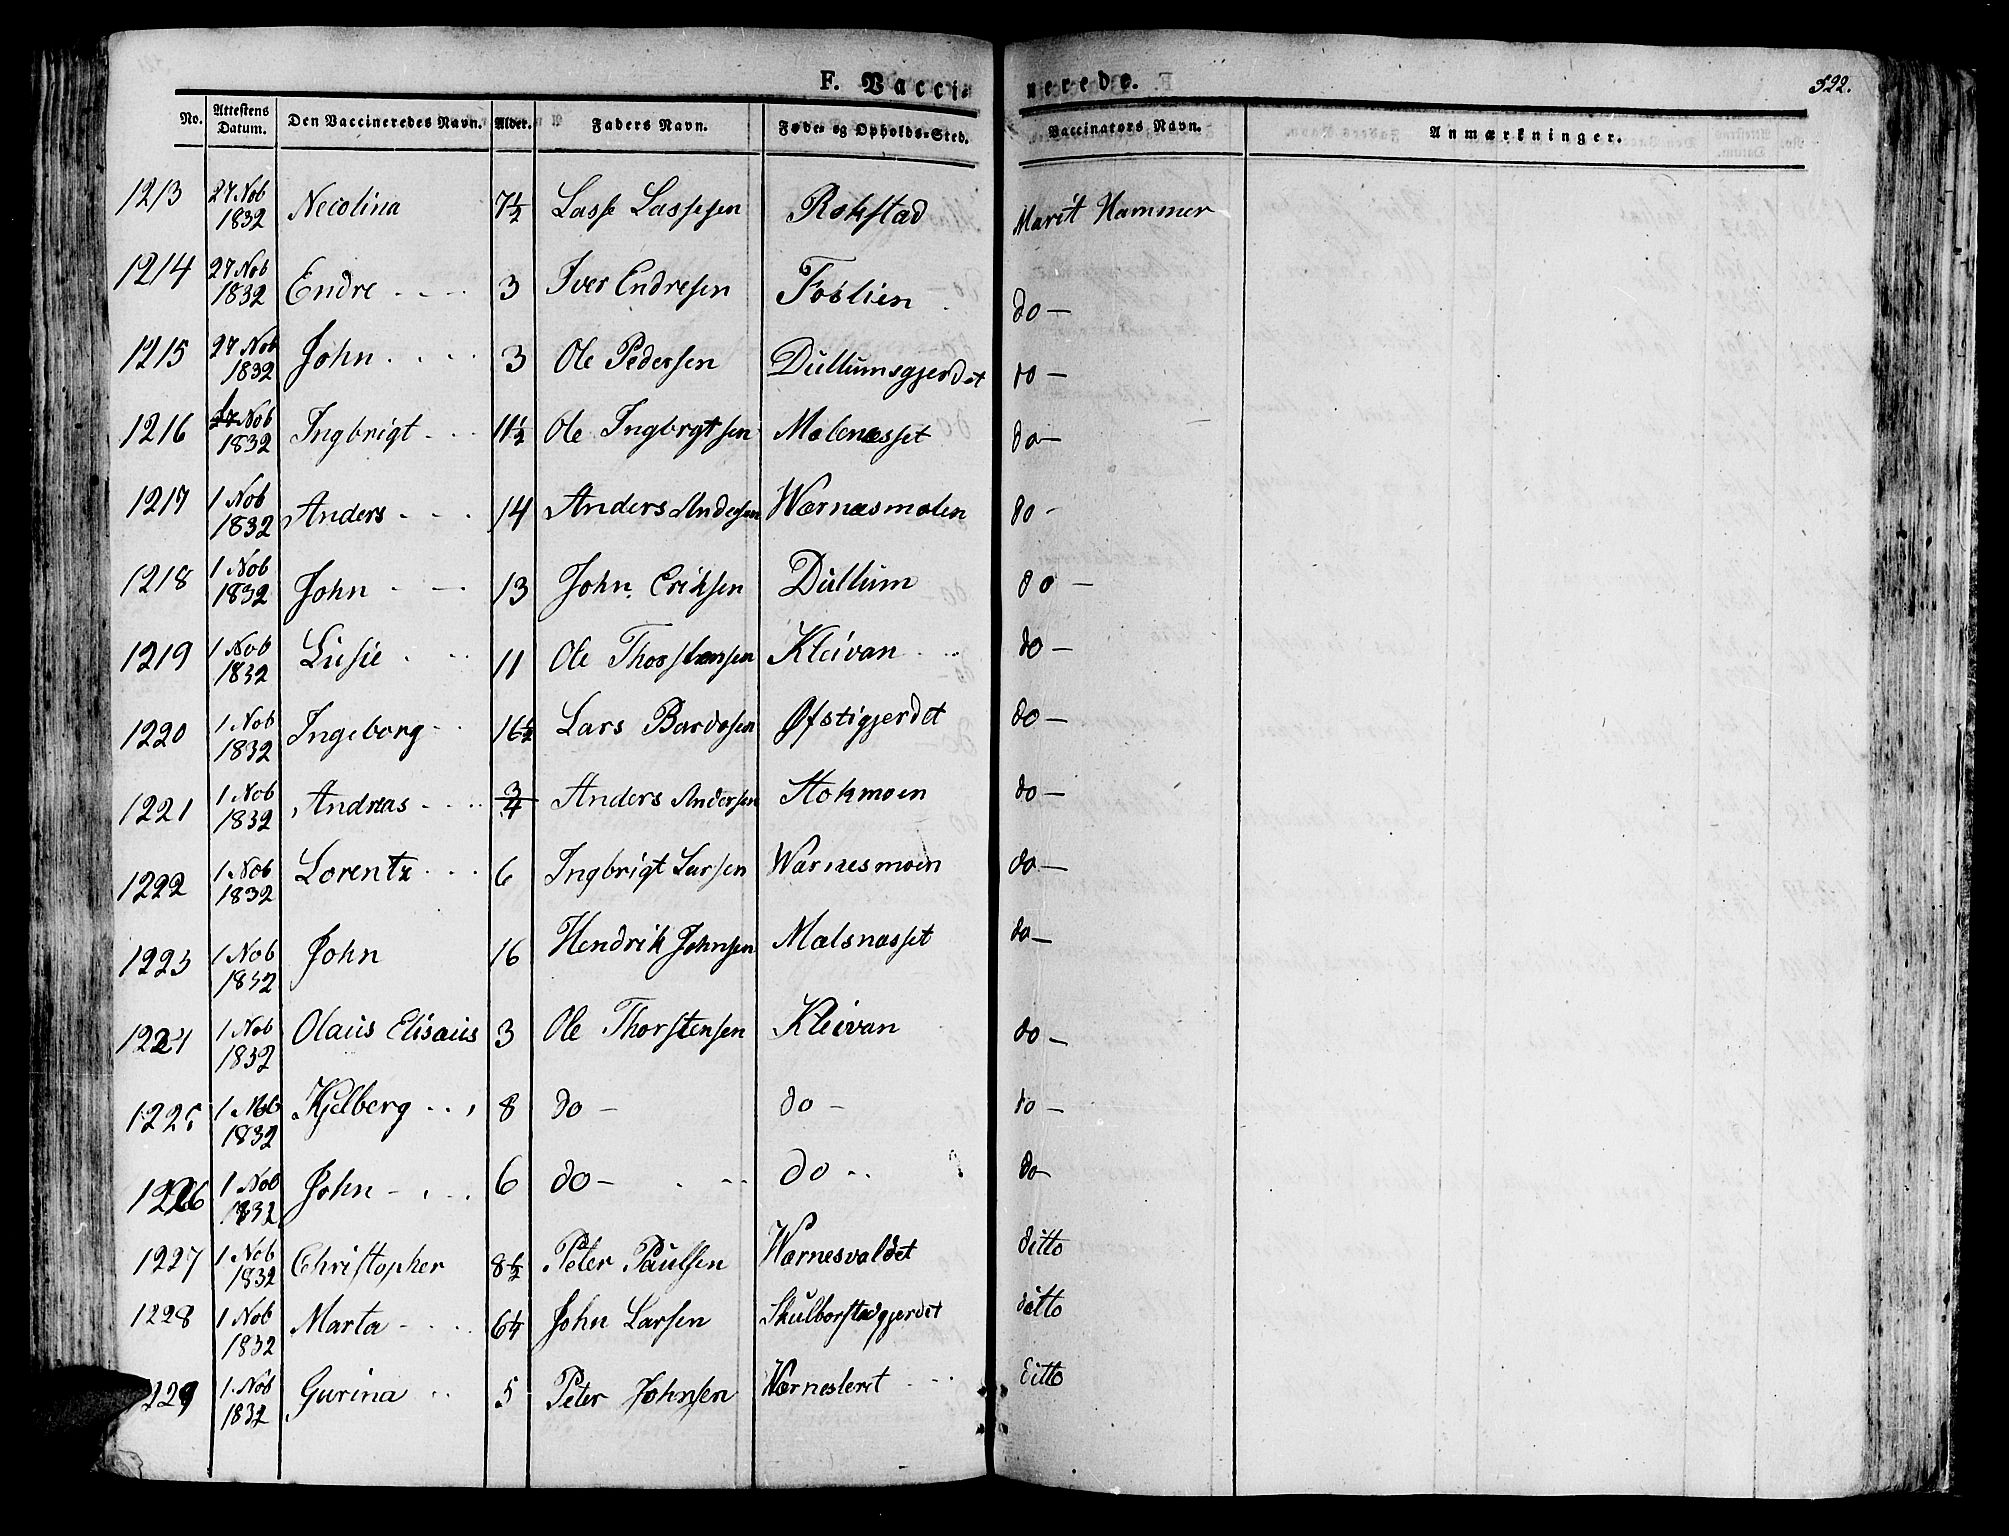 F. Vaccinerede.
522.
No. Attestens Datum. Den Vaccineredes Navn. Alder. Faders Navn. Føde- og Opholds-Sted. Vaccinators Navn. Anmærkninger.
1213 27 Nob 1832 Necolina 7½ Lasse Lassesen Rokstad Marit Hammer
1214 27 Nob 1832 Endre 3 Iver Endresen Foslien do
1215 27 Nob 1832 John 3 Ole Pedersen Dullumsgjerdet do
1216 1 Nob 1832 Ingbrigt 11½ Ole Ingbrgtsen Molenæsset do
1217 1 Nob 1832 Anders 14 Anders Andersen Wærnæsmolen do
1218 1 Nob 1832 John 13 John Eriksen Dullum do
1219 1 Nob 1832 Lusie 11 Ole Thorstensen Kleivan do
1220 1 Nob 1832 Ingeborg 16½ Lars Bardosen Øfstigjerdet do
1221 1 Nob 1832 Andreas 3/4 Anders Andersen Stokmoen do
1222 1 Nob 1832 Lorentz 6 Ingbrigt Larsen Warnesmoen do
1223 1 Nob 1832 John 16 Hendrik Johnsen Mælsnæsset do
1224 1 Nob 1832 Olaus Elisæus 3 Ole Thorstensen Kleivan do
1225 1 Nob 1832 Kjelberg 8 do do do
1226 1 Nob 1832 John 6 do do do
1227 1 Nob 1832 Christopher 8½ Peter Paulsen Wærnesvaldet ditto
1228 1 Nob 1832 Marta 6¼ John Larsen Skulborstadgjerdet ditto
1229 1 Nob 1832 Gurina 5 Peter Johnsen Wærnesleret ditto